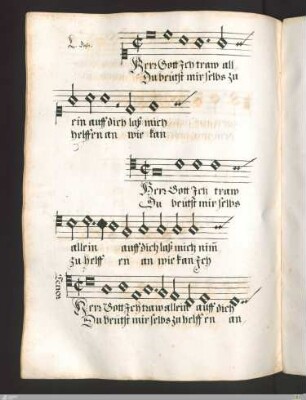 Herr Gott Ich traw all
Du beutst mir selbs zu
ein auff dich laß mich
helffen an wie kan
Herr Gott Ich traw
Du beutst mir selbs
allein auff dich laß mich nim̄
zu helff en an wie kan Ich
Tenor
Herr Gott Ich traw allein auff dich
Du beutst mir selbs zu helff en an